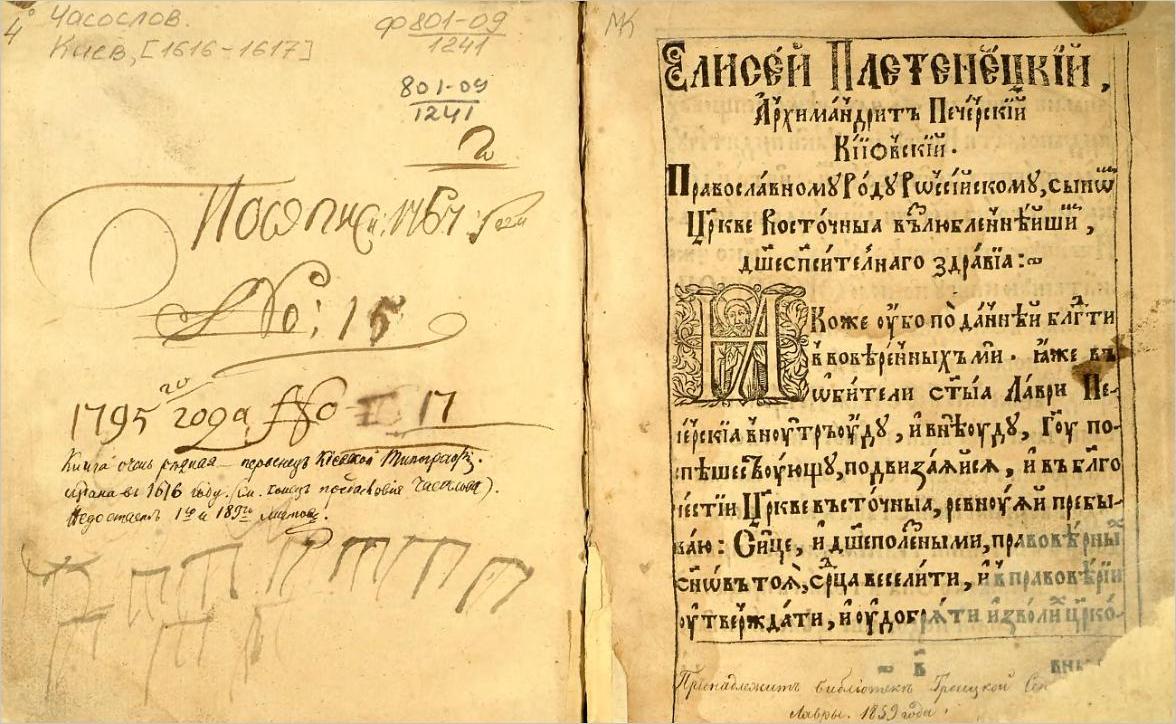 4°
Часослов.
Киев, [1616-1617]
Ф 801-09
1241
801-09
1241
2
No: 15
1795 го года No 17
Книга очень рѣдкая — первенецъ Кіевской Типографіи.
въ 1616 году. (см. конецъ послѣсловія Часослова).
Недостаетъ 1го и 189го листовъ.
МК
Єлисе́й Плетене́цкїй,
А҆рхима́ндритъ Пече́рскїй
Кїі́ѡвскїй.
Правосла́вному Ро́ду Рѡссі́йскому, сынѡ́м
Цр҃кве Восто́чныа въꙁлю́бленнѣйши́м,
дш҃еспси́телнаго здра́вїа:~
Ꙗ҆́коже ᲂу҆́бо по да́ннѣй бл҃гти
и҆ ввовѣре́нныхъ ми. ꙗ҆́же въ
ѡ҆би́тели ст҃ы́а Ла́ври Пе-
че́рскїа вноутръоу́ду, и҆ внѣоу́ду, Гд҇оу по-
спѣшес҇твоу́ющу, подвиза́ѧйсѧ, и҆ въ бл҃го
че́стїи Цр҃кве въсто́чныа, ревноу́ѧй пребы-
ва́ю: Си́це, и҆ дш҃еполе́ꙁными, правовѣ́рны
сн҃ѡ́въ тоѧ̀, ср҇дца весели́ти, и҆ в правовѣ́рїи
ᲂу҆твержда́ти, и҆ ᲂу҆добрѧ́ти и҆ꙁво́лих цр҃ко́-
в
вны
Принадлежитъ библіотекѣ Троицкой
Лавры. 1859 года.